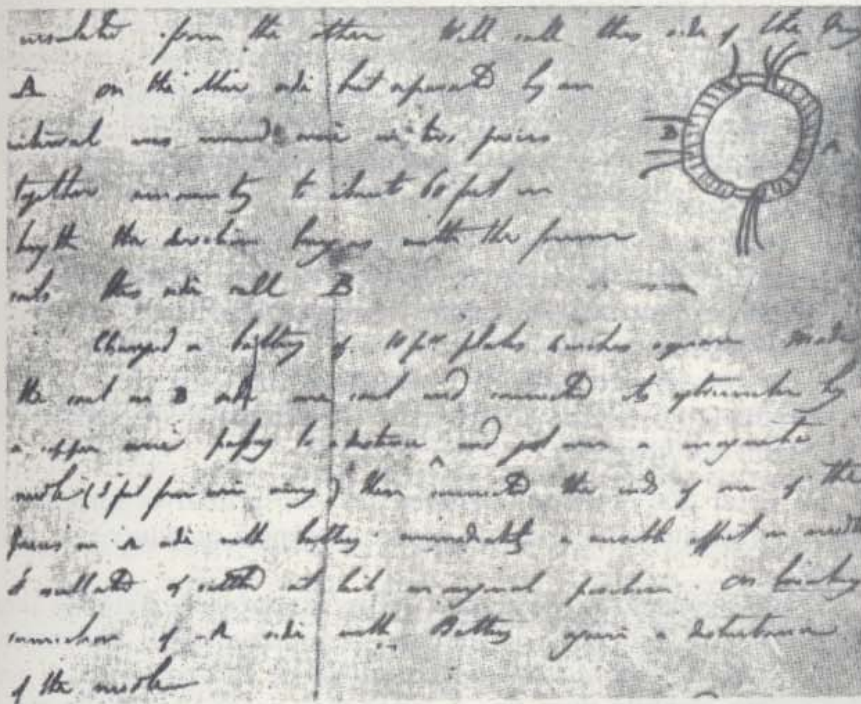 insulated from the other. Will call this side of the Ring
A on the other side but separated by an
interval was wound wire in two pieces
together amounting to about 60 feet in
length the direction being as with the former
coils this side call B
Charged a battery of 10 pr plates 4 inches square Made
the coil on B side one coil and connected its extremities by
a copper wire passing to a distance and just over a magnetic
needle (3 feet from wire ring) then connected the ends of one of the
pieces on A side with battery immediately a sensible effect on needle
It oscillated & settled at last in original position. On breaking
connection of A side with Battery again a disturbance
of the needle
B
A